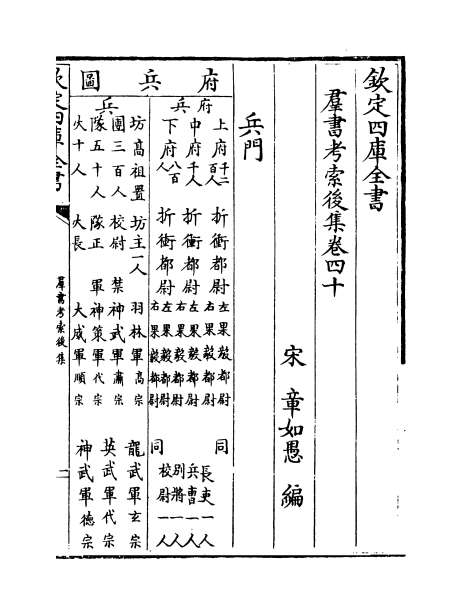 欽定四庫全書
羣書考索後集卷四十
宋 章如愚 編
兵門
府兵圖
府兵
上府千二百人 折衝都尉 左果毅都尉右果毅都尉 同 長吏一人
中府千人 折衝都尉 左果毅都尉右果毅都尉 兵曹一人
下府八百人 折衝都尉 左果毅都尉右果毅都尉 同 別將一人 校尉一人
兵
坊高祖置 坊主一人 羽林軍高宗 龍武軍玄宗
團三百人 校尉 禁 神武軍肅宗 英武軍代宗
隊五十人 隊正 軍 神策軍代宗 神武軍德宗
火十人 火長 大威軍順宗
欽定四庫全書
羣書考索後集